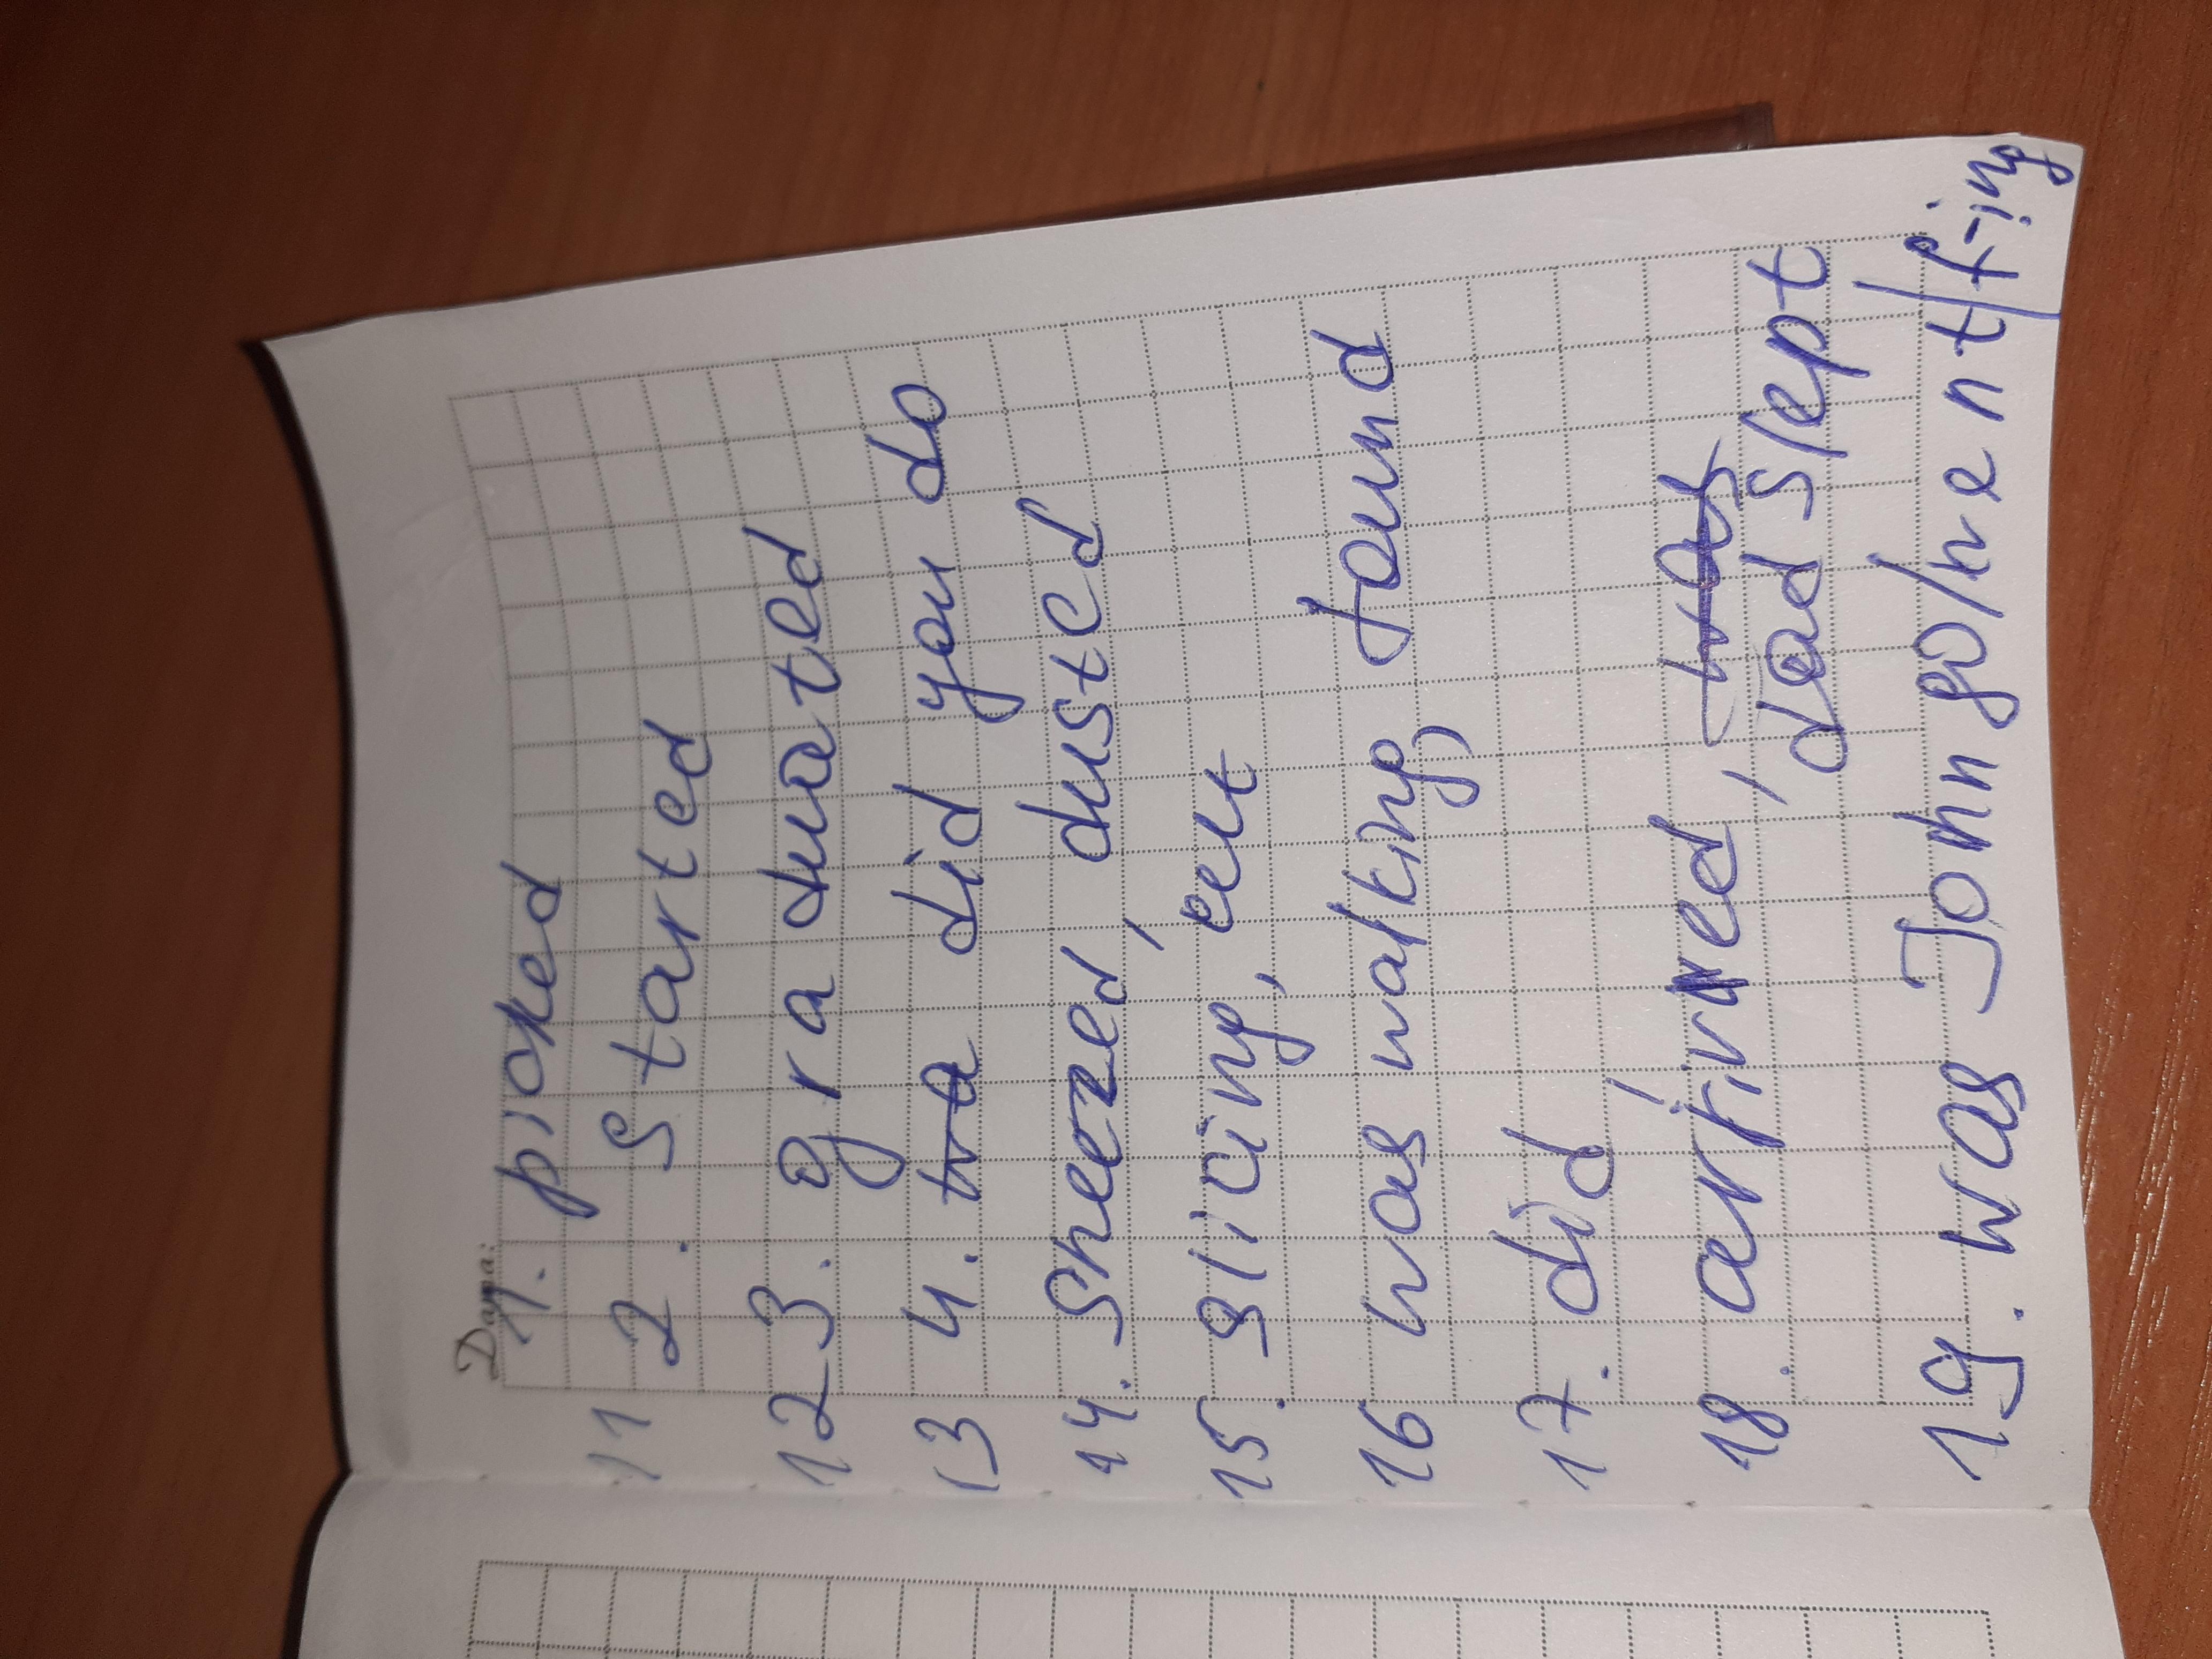 Дата:
1. picked
11 2. started
12 3. graduated
13 4. did you do
14. Sneezed, dusted
15. slicing, cut
16 was walking, found
17. did
18. arrived, dad slept
19. was John go/went/f-ing